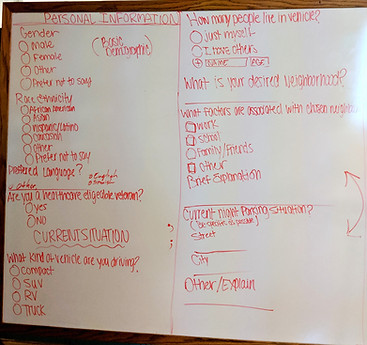 PERSONAL INFORMATION
Gender
Male
Female
Other
Prefer not to say
(Basic
Demographic)
Race/Ethnicity
African American
Asian
Hispanic/Latino
Caucasian
Other
Prefer not to say
Preferred Language?
English
Other
Are you a healthcare digeible veteran?
Yes
NO
CURRENT SITUATION
What kind of vehicle are you driving?
Compact
SUV
RV
Truck
How many people live in vehicle?
Just myself
I have others
NAME AGE
What is your desired Neighborhood?
What factors are associated with chosen
Work
School
Family/Friends
Other
Brief Explanation
Current night Parking Situation?
(Be specific as possible)
Street
City
Other/Explain